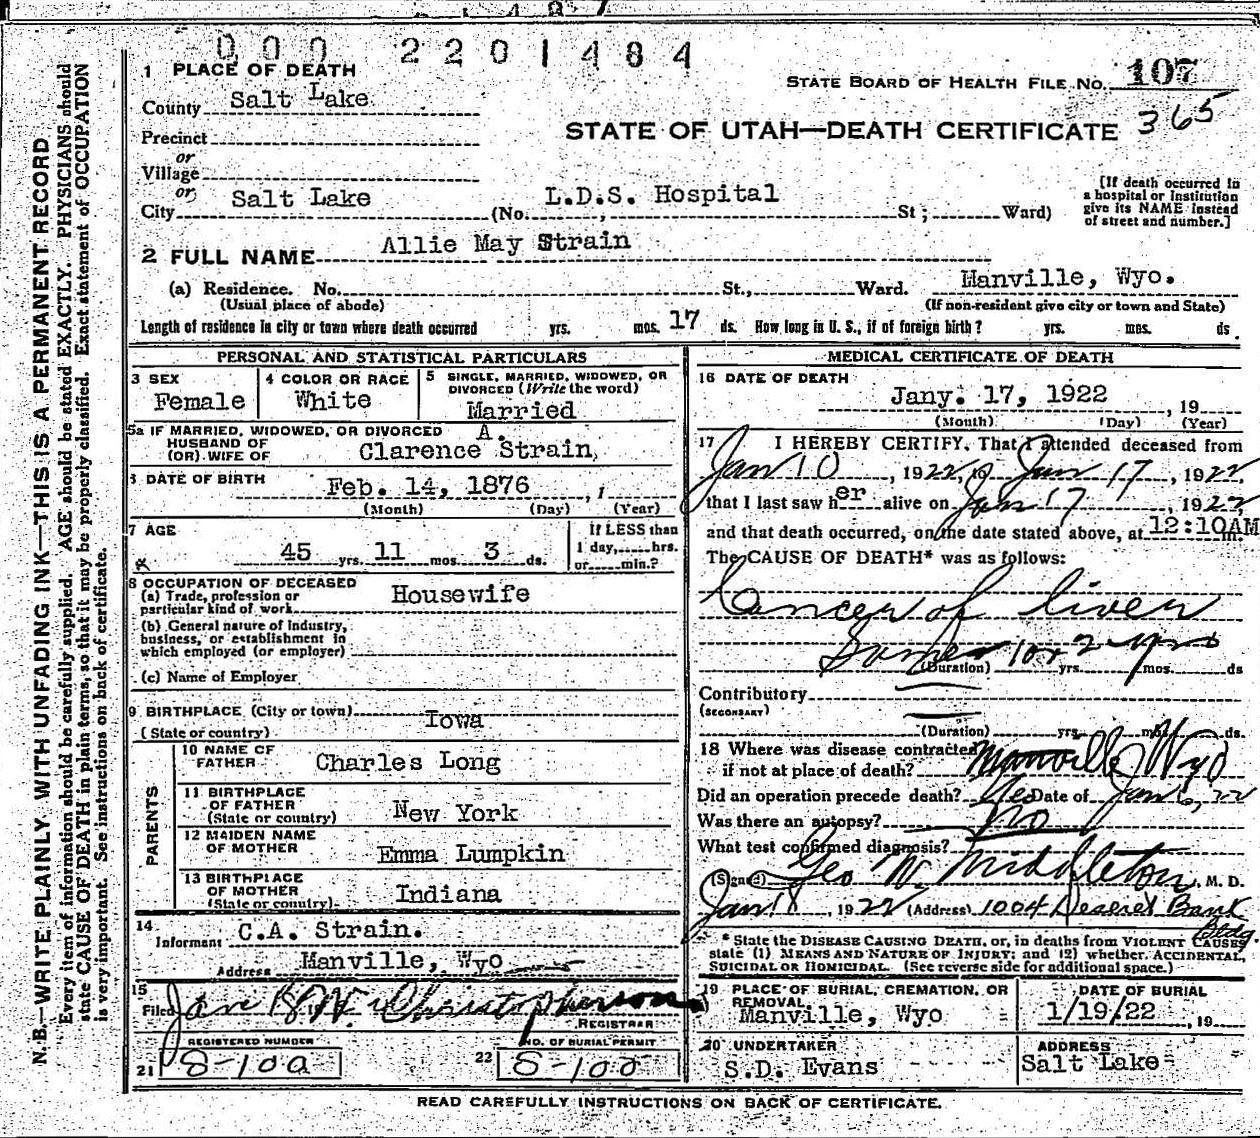 000 2201484
1 PLACE OF DEATH
STATE BOARD OF HEALTH FILE NO. 107
County Salt Lake
365
STATE OF UTAH—DEATH CERTIFICATE
Precinct
or
Village
or
City Salt Lake (No. L.D.S. Hospital St; Ward)
[If death occurred in
a hospital or institution
give its NAME instead
of street and number.]
2 FULL NAME Allie May Strain
(a) Residence. No. St., Ward. Manville, Wyo.
(Usual place of abode) (If non-resident give city or town and State)
Length of residence in city or town where death occurred yrs. mos. 17 ds. How long in U. S., if of foreign birth? yrs. mos. ds
PERSONAL AND STATISTICAL PARTICULARS
3 SEX
Female
4 COLOR OR RACE
White
5 SINGLE, MARRIED, WIDOWED, OR
DIVORCED (Write the word)
Married
5a IF MARRIED, WIDOWED, OR DIVORCED
HUSBAND OF
(OR) WIFE OF
A.
Clarence Strain
DATE OF BIRTH
Feb. 14, 1876
(Month) (Day) (Year)
7 AGE
45 yrs. 11 mos. 3 ds.
If LESS than
1 day,......hrs.
or......min.?
8 OCCUPATION OF DECEASED
(a) Trade, profession or
particular kind of work Housewife
(b) General nature of industry,
business, or establishment in
which employed (or employer)
(c) Name of Employer
9 BIRTHPLACE (City or town)
(State or country) Iowa
PARENTS
10 NAME OF
FATHER Charles Long
11 BIRTHPLACE
OF FATHER
(State or country) New York
12 MAIDEN NAME
OF MOTHER Emma Lumpkin
13 BIRTHPLACE
OF MOTHER
(State or country) Indiana
14
Informant C.A. Strain.
Address Manville, Wyo
15
Filed Jan 18 W. Christopherson
REGISTRAR
REGISTERED NUMBER
21 S-100
NO. OF BURIAL PERMIT
22 S-100
MEDICAL CERTIFICATE OF DEATH
16 DATE OF DEATH
Jany. 17, 1922 , 19
(Month) (Day) (Year)
17 I HEREBY CERTIFY, That I attended deceased from
Jan 10, 1922, to Jan 17, 1922,
that I last saw her alive on Jan 17 1922,
and that death occurred, on the date stated above, at 12:10AM m.
The CAUSE OF DEATH* was as follows:
Cancer of liver
Some 1 or 2 yrs
(Duration) yrs. mos. ds
Contributory
(SECONDARY)
(Duration) yrs. mos. ds.
18 Where was disease contracted
if not at place of death? Manville Wyo
Did an operation precede death? Yes Date of Jan 6, 22
Was there an autopsy? No
What test confirmed diagnosis?
(Signed) Geo W. Middleton, M. D.
Jan 18, 1922 (Address) 1004 Deseret Bank
Bldg.
* State the DISEASE CAUSING DEATH, or, in deaths from VIOLENT CAUSES
state (1) MEANS AND NATURE OF INJURY; and (2) whether ACCIDENTAL,
SUICIDAL OR HOMICIDAL. (See reverse side for additional space.)
19 PLACE OF BURIAL, CREMATION, OR
REMOVAL
Manville, Wyo
DATE OF BURIAL
1/19/22 , 19
20 UNDERTAKER
S.D. Evans
ADDRESS
Salt Lake
READ CAREFULLY INSTRUCTIONS ON BACK OF CERTIFICATE.
N. B.—WRITE PLAINLY WITH UNFADING INK—THIS IS A PERMANENT RECORD
Every item of information should be carefully supplied. AGE should be stated EXACTLY. PHYSICIANS should
state CAUSE OF DEATH in plain terms, so that it may be properly classified. Exact statement of OCCUPATION
is very important. See instructions on back of certificate.